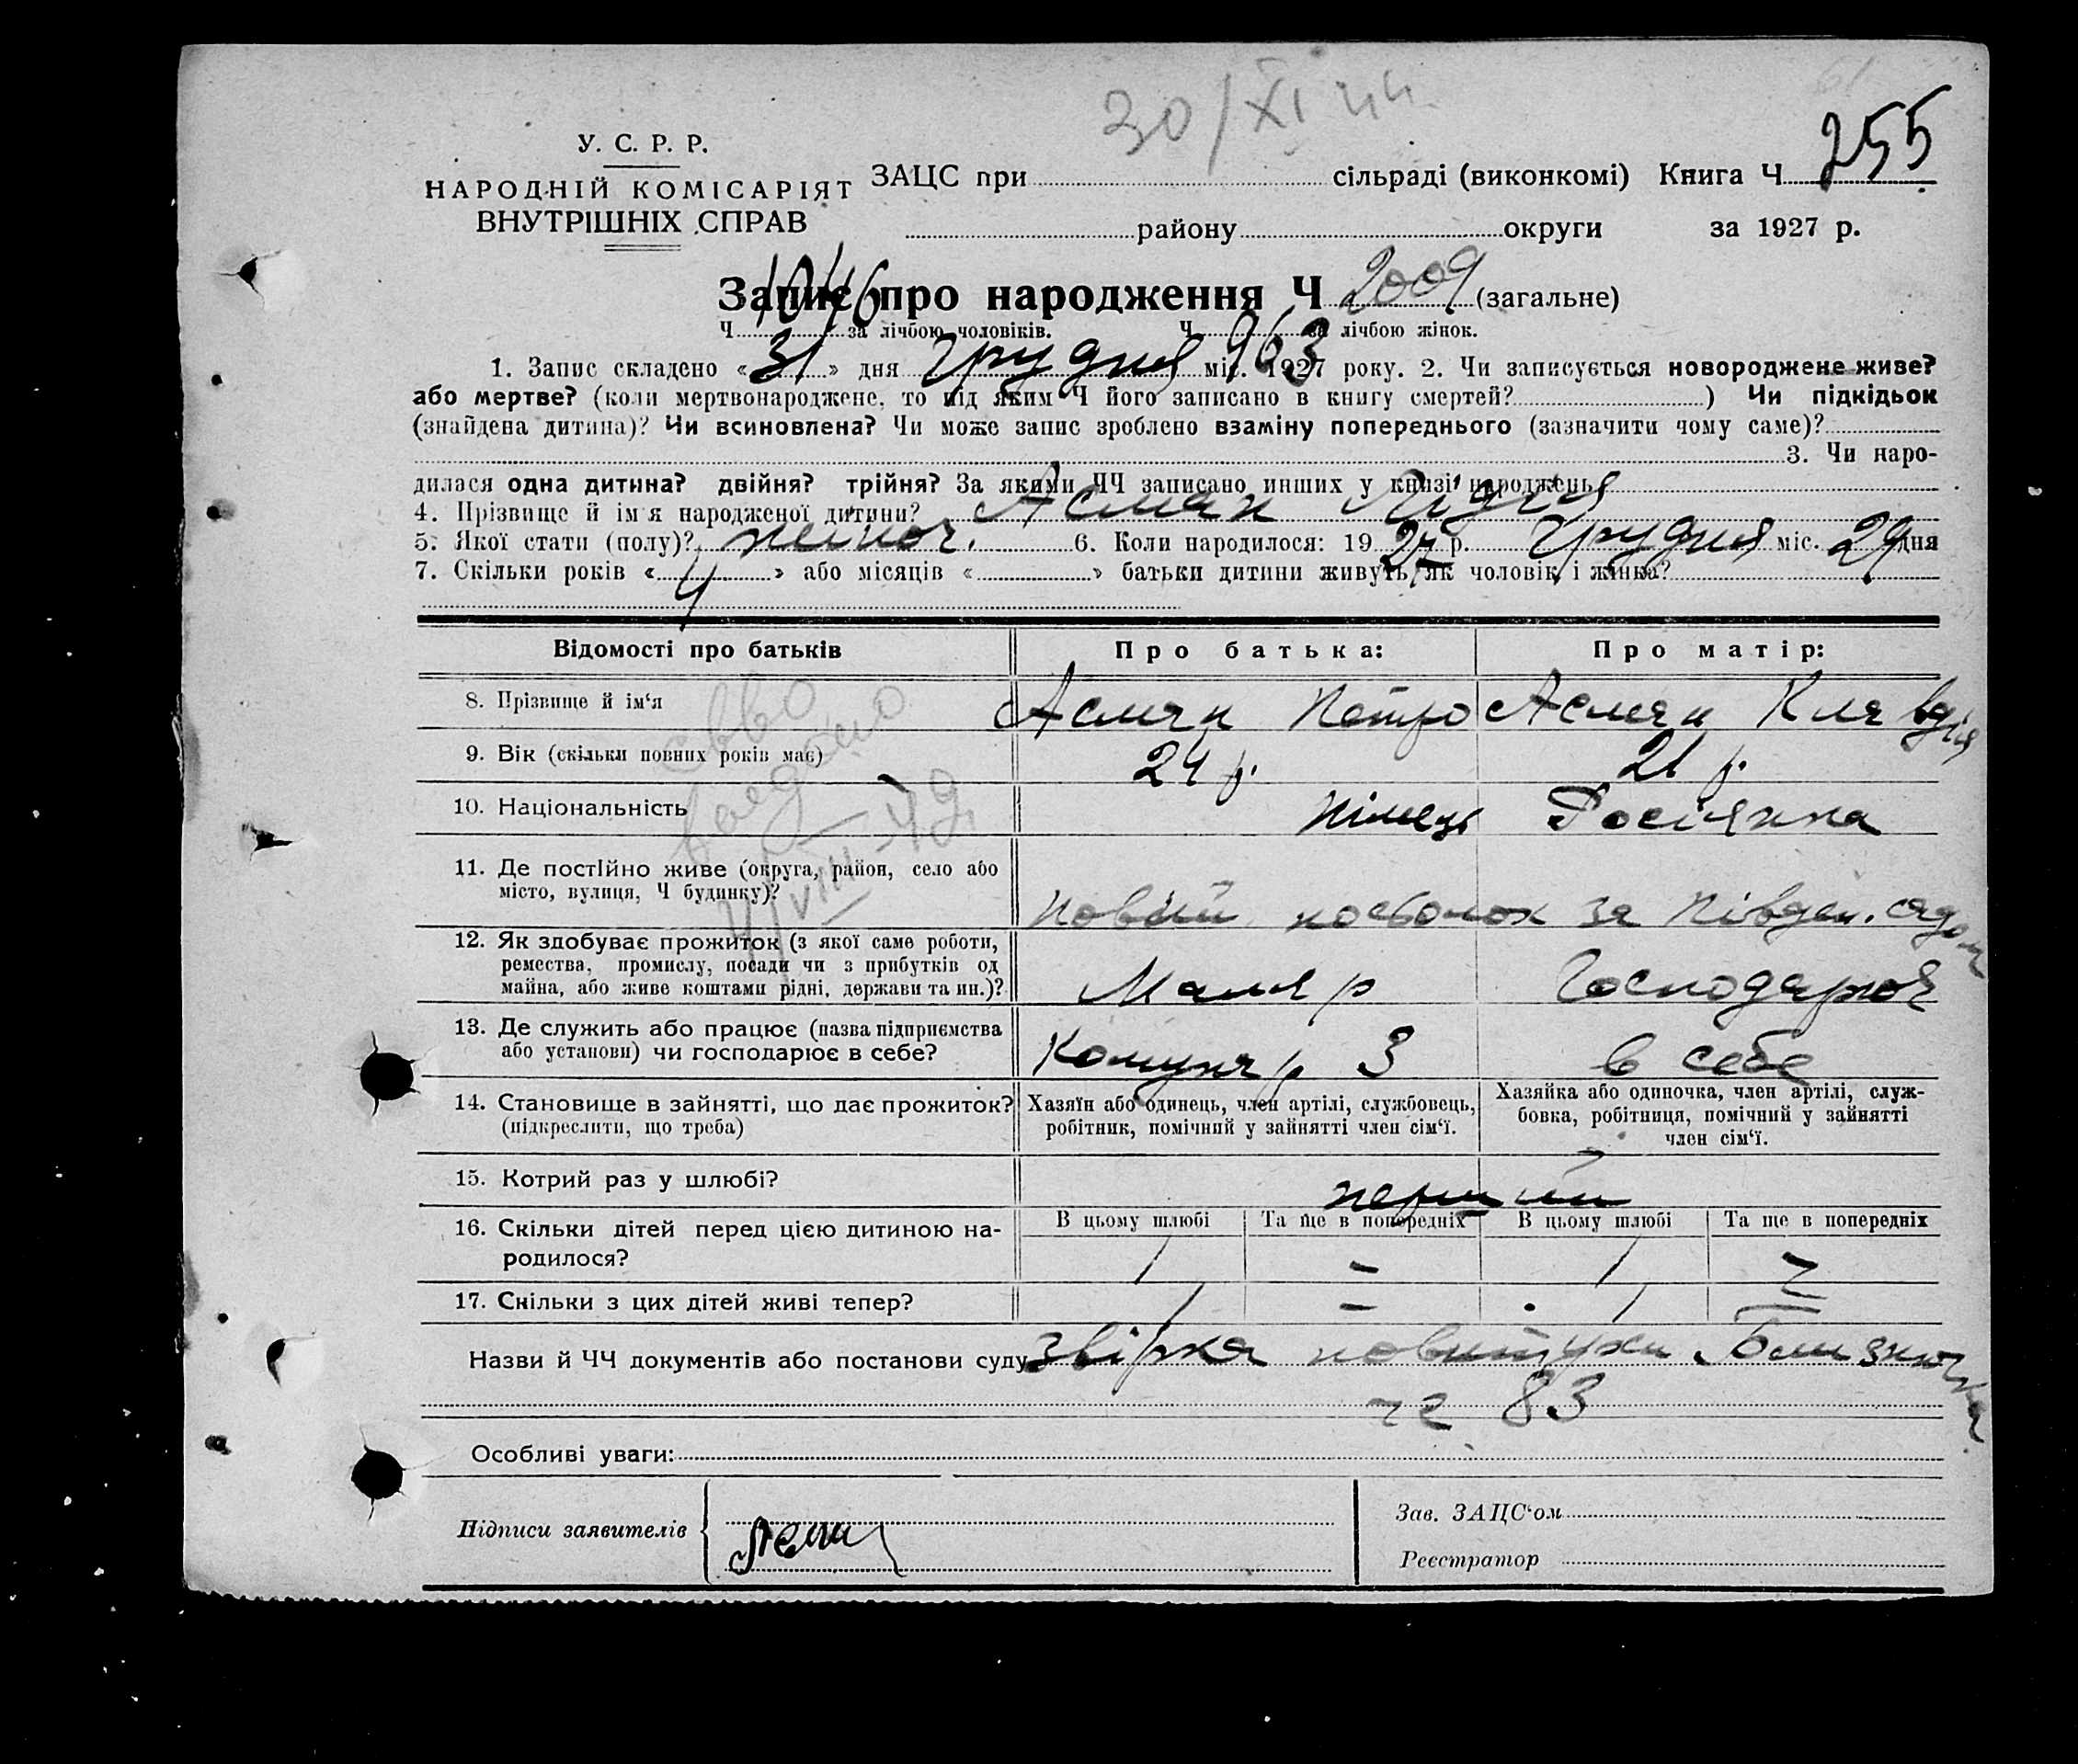 30/XI
255
У. С. Р. Р.
НАРОДНІЙ КОМІСАРІЯТ
ВНУТРІШНІХ СПРАВ
ЗАЦС при сільраді (виконкомі) Книга Ч
району округи за 1927 р.
Запис про народження Ч 2009 (загальне)
1046 963
Ч за лічбою чоловіків. Ч за лічбою жінок.
1. Запис складено « 31 » дня грудня міс. 1927 року. 2. Чи записується новороджене живе?
або мертве? (коли мертвонароджене, то під яким Ч його записано в книгу смертей? ) Чи підкідьок
(знайдена дитина)? Чи всиновлена? Чи може запис зроблено взаміну попереднього (зазначити чому саме)?
3. Чи наро-
дилася одна дитина? двійня? трійня? За якими ЧЧ записано инших у книзі народжень
4. Прізвище й ім'я народженої дитини? Асман Лідія
5. Якої стати (полу)? жіноч. 6. Коли народилося: 19 27 р. грудня міс. 29 дня
7. Скільки років « 4 » або місяців « » батьки дитини живуть, як чоловік і жінка?
Відомості про батьків Про батька: Про матір:
8. Прізвище й ім'я Асман Петро Асман Клавдія
9. Вік (скільки повних років має) 24 р. 21 р.
10. Національність Німець Росіянка
11. Де постійно живе (округа, район, село або
місто, вулиця, Ч будинку)? Новий посьолок за Півден. садом
12. Як здобуває прожиток (з якої саме роботи,
ремества, промислу, посади чи з прибутків од
майна, або живе коштами рідні, держави та ин.)? Маляр Господарює
13. Де служить або працює (назва підприємства
або установи) чи господарює в себе? Комунар 3 в себе
14. Становище в зайнятті, що дає прожиток?
(підкреслити, що треба)
Хазяїн або одинець, член артілі, службовець,
робітник, помічний у зайнятті член сім'ї.
Хазяйка або одиночка, член артілі, служ-
бовка, робітниця, помічний у зайнятті
член сім'ї.
15. Котрий раз у шлюбі? перший
16. Скільки дітей перед цією дитиною на-
родилося?
В цьому шлюбі Та ще в попередніх В цьому шлюбі Та ще в попередніх
1 – 1 –
17. Скільки з цих дітей живі тепер? 1 – 1 –
Назви й ЧЧ документів або постанови суду звірка повитухи Близнюка
83
Особливі уваги:
Підписи заявителів
Зав. ЗАЦС'ом
Реєстратор